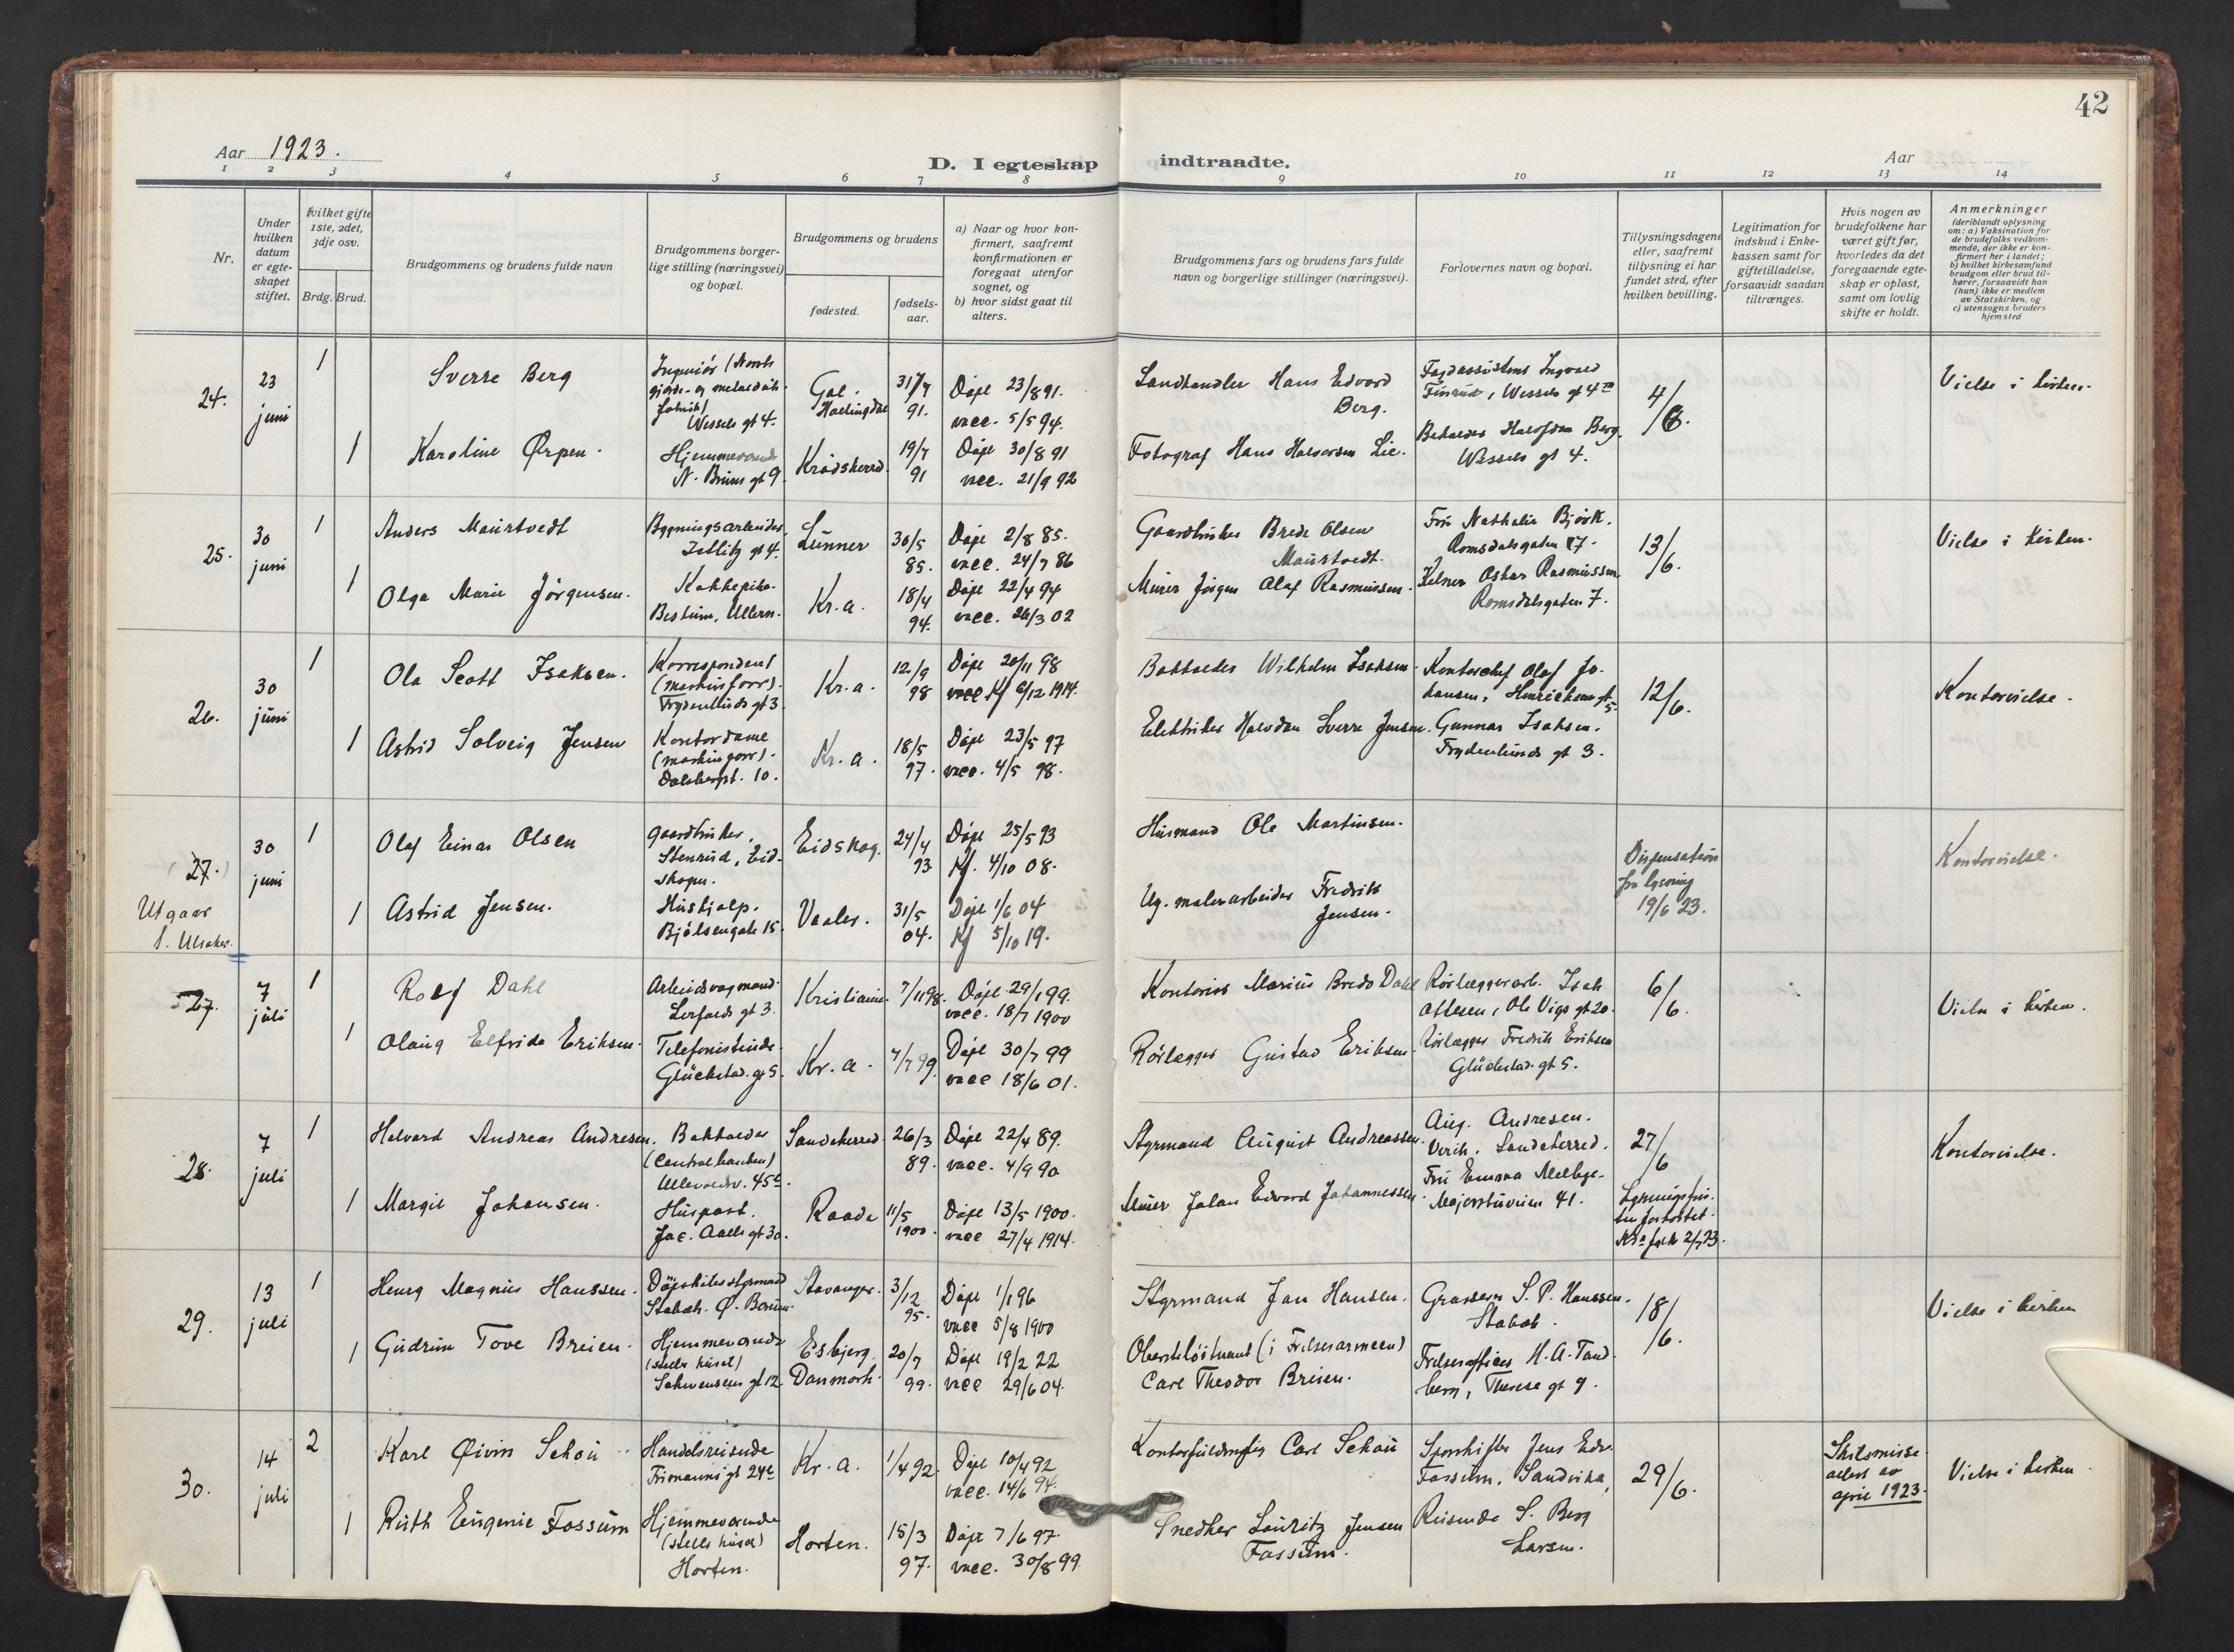 42
Aar 1923.
D. I egteskap indtraadte.
Aar
1 2 3 4 5 6 7 8 9 10 11 12 13 14
Nr.
Under hvilken datum er egteskapet stiftet.
hvilket gifte 1ste, 2det, 3dje osv.
Brdg. Brud.
Brudgommens og brudens fulde navn
Brudgommens borgerlige stilling (næringsvei) og bopæl.
Brudgommens og brudens
fødested.
fødselsaar.
a) Naar og hvor konfirmert, saafremt konfirmationen er foregaat utenfor sognet, og
b) hvor sidst gaat til alters.
Brudgommens fars og brudens fars fulde navn og borgerlige stillinger (næringsvei).
Forlovernes navn og bopæl.
Tillysningsdagene eller, saafremt tillysning ei har fundet sted, efter hvilken bevilling.
Legitimation for indskud i Enkekassen samt for giftetilladelse, forsaavidt saadan tiltrænges.
Hvis nogen av brudefolkene har været gift før, hvorledes da det foregaaende egteskap er opløst, samt om lovlig skifte er holdt.
Anmerkninger
(deriblandt oplysning om: a) Vaksination for de brudefolks vedkommende, der ikke er konfirmert her i landet; b) hvilket kirkesamfund brudgom eller brud tilhører, forsaavidt han (hun) ikke er medlem av Statskirken, og c) utensogns bruders hjemsted
24.
23
juni
1
Sverre Berg
Ingeniør
Wessels gt 4.
Gol.
Hallingdal
31/7
91.
Døpt 23/8 91.
vacc. 5/5 94.
Landhandler Hans Edvard
Berg.
Wessels gt 4
4/6.
Vielse i kirken.
1
Karoline Ørpen.
Hjemmeværende
N. Bruns gt 9.
Krødsherred
19/7
91
Døpt 30/8 91
vacc. 21/9 92
Fotograf Hans Halvorsen Lie.
Berg.
Wessels gt 4.
25.
30
juni
1
Anders Maurtvedt
Bygningsarbeider
gt 4.
Lunner
30/5
85.
Døpt 2/8 85.
vacc. 24/7 86
Gaardbruker Brede Olsen
Maurtvedt.
Fru Nathalie Bjørk.
Romsdalsgaten 7.
13/6.
Vielse i kirken.
1
Olga Marie Jørgensen.
Kokkepike.
Bestum, Ullern.
Kr.a.
18/4
94.
Døpt 22/4 94
vacc. 26/3 02
Murer Jørgen Olaf Rasmussen.
Kelner Oskar Rasmussen
Romsdalsgaten 7.
26.
30
juni
1
Ola Scott Isaksen.
Korrespondent
(maskinforr.)
Frydenlunds gt 3
Kr.a.
12/9
98
Døpt 20/11 98
vacc Kf 6/12 1914.
Bokholder Wilhelm Isaksen.
Kontorchef Olaf Johansen,
12/6.
Kontorvielse.
1
Astrid Solveig Jensen
Kontordame
(maskinforr.).
Dalsbergst. 10.
Kr.a.
18/5
97.
Døpt 23/5 97
vacc. 4/5 98.
Elektriker Halvdan Sverre Jensen.
Gunnar Isaksen.
Frydenlunds gt 3.
(27.)
Utgaar
30
juni
1
Olaf Einar Olsen
Gaardbruker,
Stenrud, Eidskogen.
Eidskog.
24/4
93
Døpt 25/5 93
Kf. 4/10 08.
Husmand Ole Martinsen.
Dispensation
fra lysning
19/6 23.
Kontorvielse.
1
Astrid Jensen.
Hushjælp.
Bjølsengate 15.
Vaaler.
31/5
04.
Døpt 1/6 04
Kf 5/10 19.
Ug. malerarbeider Fredrik
Jensen.
27.
7
juli
1
Rolf Dahl
Arbeidsvogmand
gt 3.
Kristiania.
7/11 98.
Døpt 29/1 99.
vacc. 18/7 1900
Kontorist Marius Bredo Dahl
Rørlæggerarb. Isak
Ottesen, Ole Vigs gt 20.
6/6.
Vielse i kirken.
1
Olaug Elfrida Eriksen.
Telefonistinde.
Glückstad. gt 5.
Kr.a.
7/7 99.
Døpt 30/7 99
vacc 18/6 01.
Rørlægger Gustav Eriksen.
Rørlægger Fredrik Eriksen
Glückstad. gt 5.
28.
7
juli
1
Halvard Andreas Andresen.
Bokholder
(Centralbanken)
Ullevoldsv. 45
Sandeherred.
26/3
89.
Døpt 22/4 89.
vacc. 4/9 90
Styrmand August Andreassen.
Aug. Andresen.
Sandeherred.
27/6
Kontorvielse.
1
Margit Johansen.
Huspost.
Jac. Aalls gt 30.
Raade
11/5
1900.
Døpt 13/5 1900.
vacc 27/4 1914.
Murer Johan Edvard Johannessen.
Fru Emma Melbye.
Majorstuveien 41.
2/7 23.
29.
13
juli
1
Henry Magnus Hanssen.
Stabæk. Ø. Bærum.
Stavanger.
3/12
95.
Døpt 1/1 96
vacc 5/8 1900
Styrmand Jan Hansen.
Grosserer S. P. Hanssen.
Stabæk.
18/6.
Vielse i kirken
1
Gudrun Tove Breien.
Hjemmeværende
(steller huset)
Schwensens gt 12.
Esbjerg.
Danmark.
20/7
99.
Døpt 19/2 22
vacc 29/6 04.
Oberstløitnant (i Frelsesarmeen)
Carl Theodor Breien.
Frelsesofficer H. A. Tandberg,
Therese gt 9.
30.
14
juli
2
Karl Øivin Schou
Handelsreisende
Frimanns gt 24
Kr.a.
1/4 92.
Døpt 10/4 92
vacc. 14/6 94.
Kontorfuldmægtig Carl Schou
Jens Edv.
Fossum, Sandvika,
29/6.
Skilsmisse
april 1923.
Vielse i kirken.
1
Ruth Eugenie Fossum
Hjemmeværende
(steller huset)
Horten.
Horten.
15/3
97.
Døpt 7/6 97.
vacc. 30/8 99.
Snedker Lauritz Jensen
Fossum.
Reisende S. Berg
Larsen.